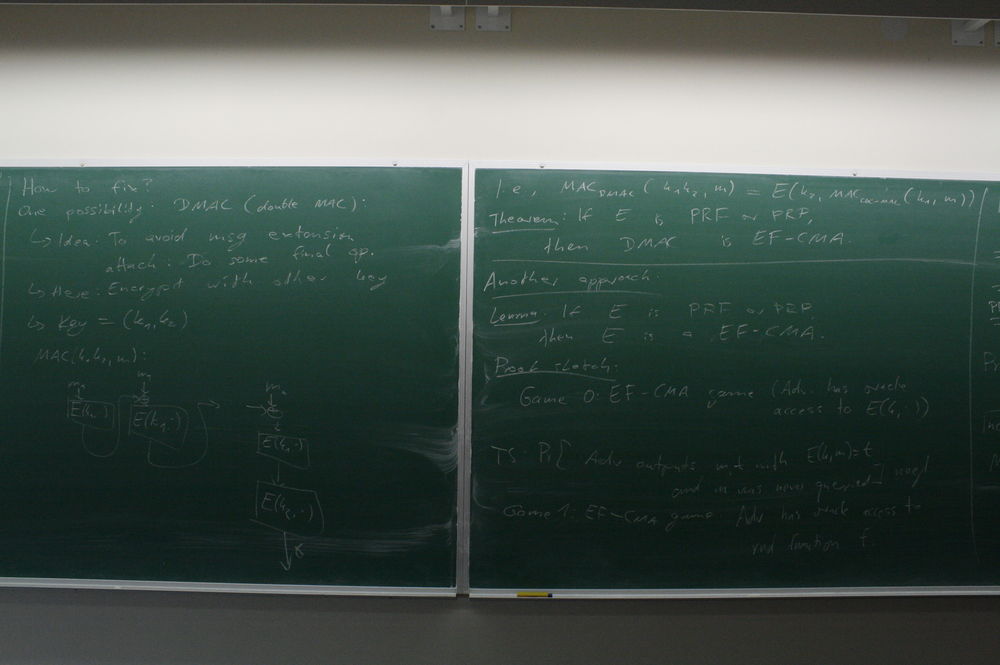 How to fix?
One possibility: DMAC (double MAC):
↳ Idea: To avoid msg extension
attack: Do some final op.
↳ Here: Encrypt with other key
↳ Key = (k₁, k₂)
MAC(k₁k₂, m):
E(k₁, ·)
E(k₁, ·)
E(k₁, ·)
E(k₂, ·)
I.e., MAC_DMAC(k₁k₂, m) = E(k₂, MAC_CBC-MAC(k₁, m))
Theorem: If E is PRF or PRP,
then DMAC is EF-CMA.
Another approach:
Lemma: If E is PRF or PRP,
then E is a EF-CMA.
Proof sketch:
Game 0: EF-CMA game (Adv has oracle
access to E(k, ·))
TS: Pr[Adv outputs m,t with E(k,m)=t
and m was never queried]
Game 1: EF-CMA game Adv has oracle access to
rnd function f.